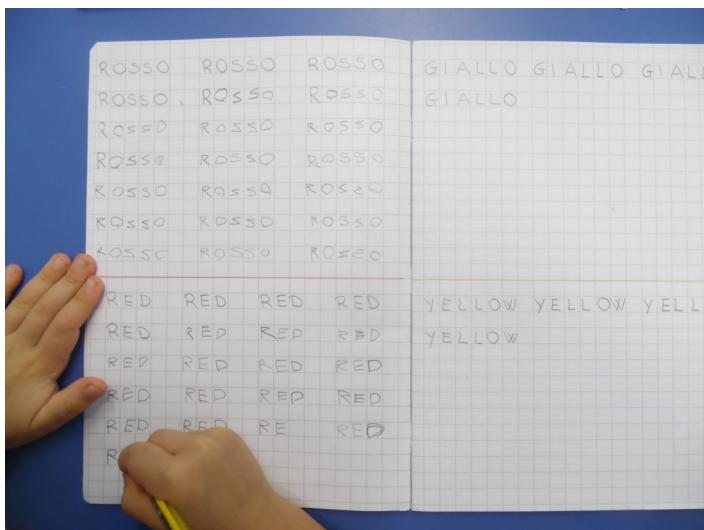 ROSSO ROSSO ROSSO
ROSSO ROSSO ROSSO
ROSSO ROSSO ROSSO
ROSSO ROSSO ROSSO
ROSSO ROSSO ROSSO
ROSSO ROSSO ROSSO
ROSSO ROSSO ROSSO
RED RED RED RED
RED RED RED RED
RED RED RED RED
RED RED RED RED
RED RED RE RED
R
GIALLO GIALLO GIALL
GIALLO
YELLOW YELLOW YELL
YELLOW